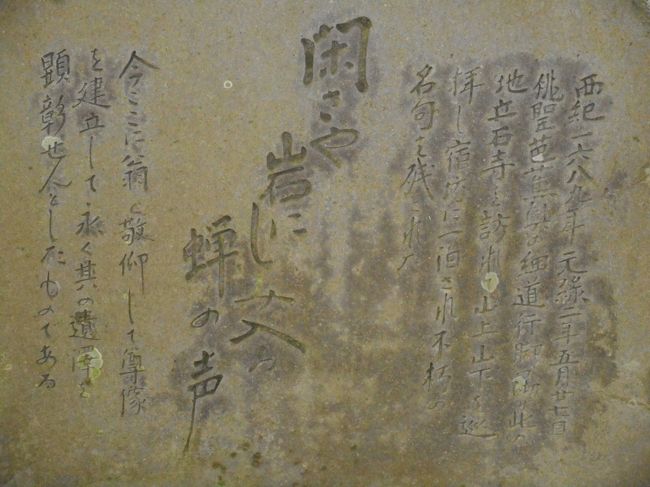 西紀一六八九年元禄二年五月廿七日
俳聖芭蕉奥の細道行脚の際此の
地立石寺を訪れて山上山下を巡
拝し宿坊に一泊され不朽の
名句を残された
閑さや
岩に
しみ入る
蝉の声
今ここに翁を敬仰して尊像
を建立して永く其の遺徳を
顕彰せんとしたものである